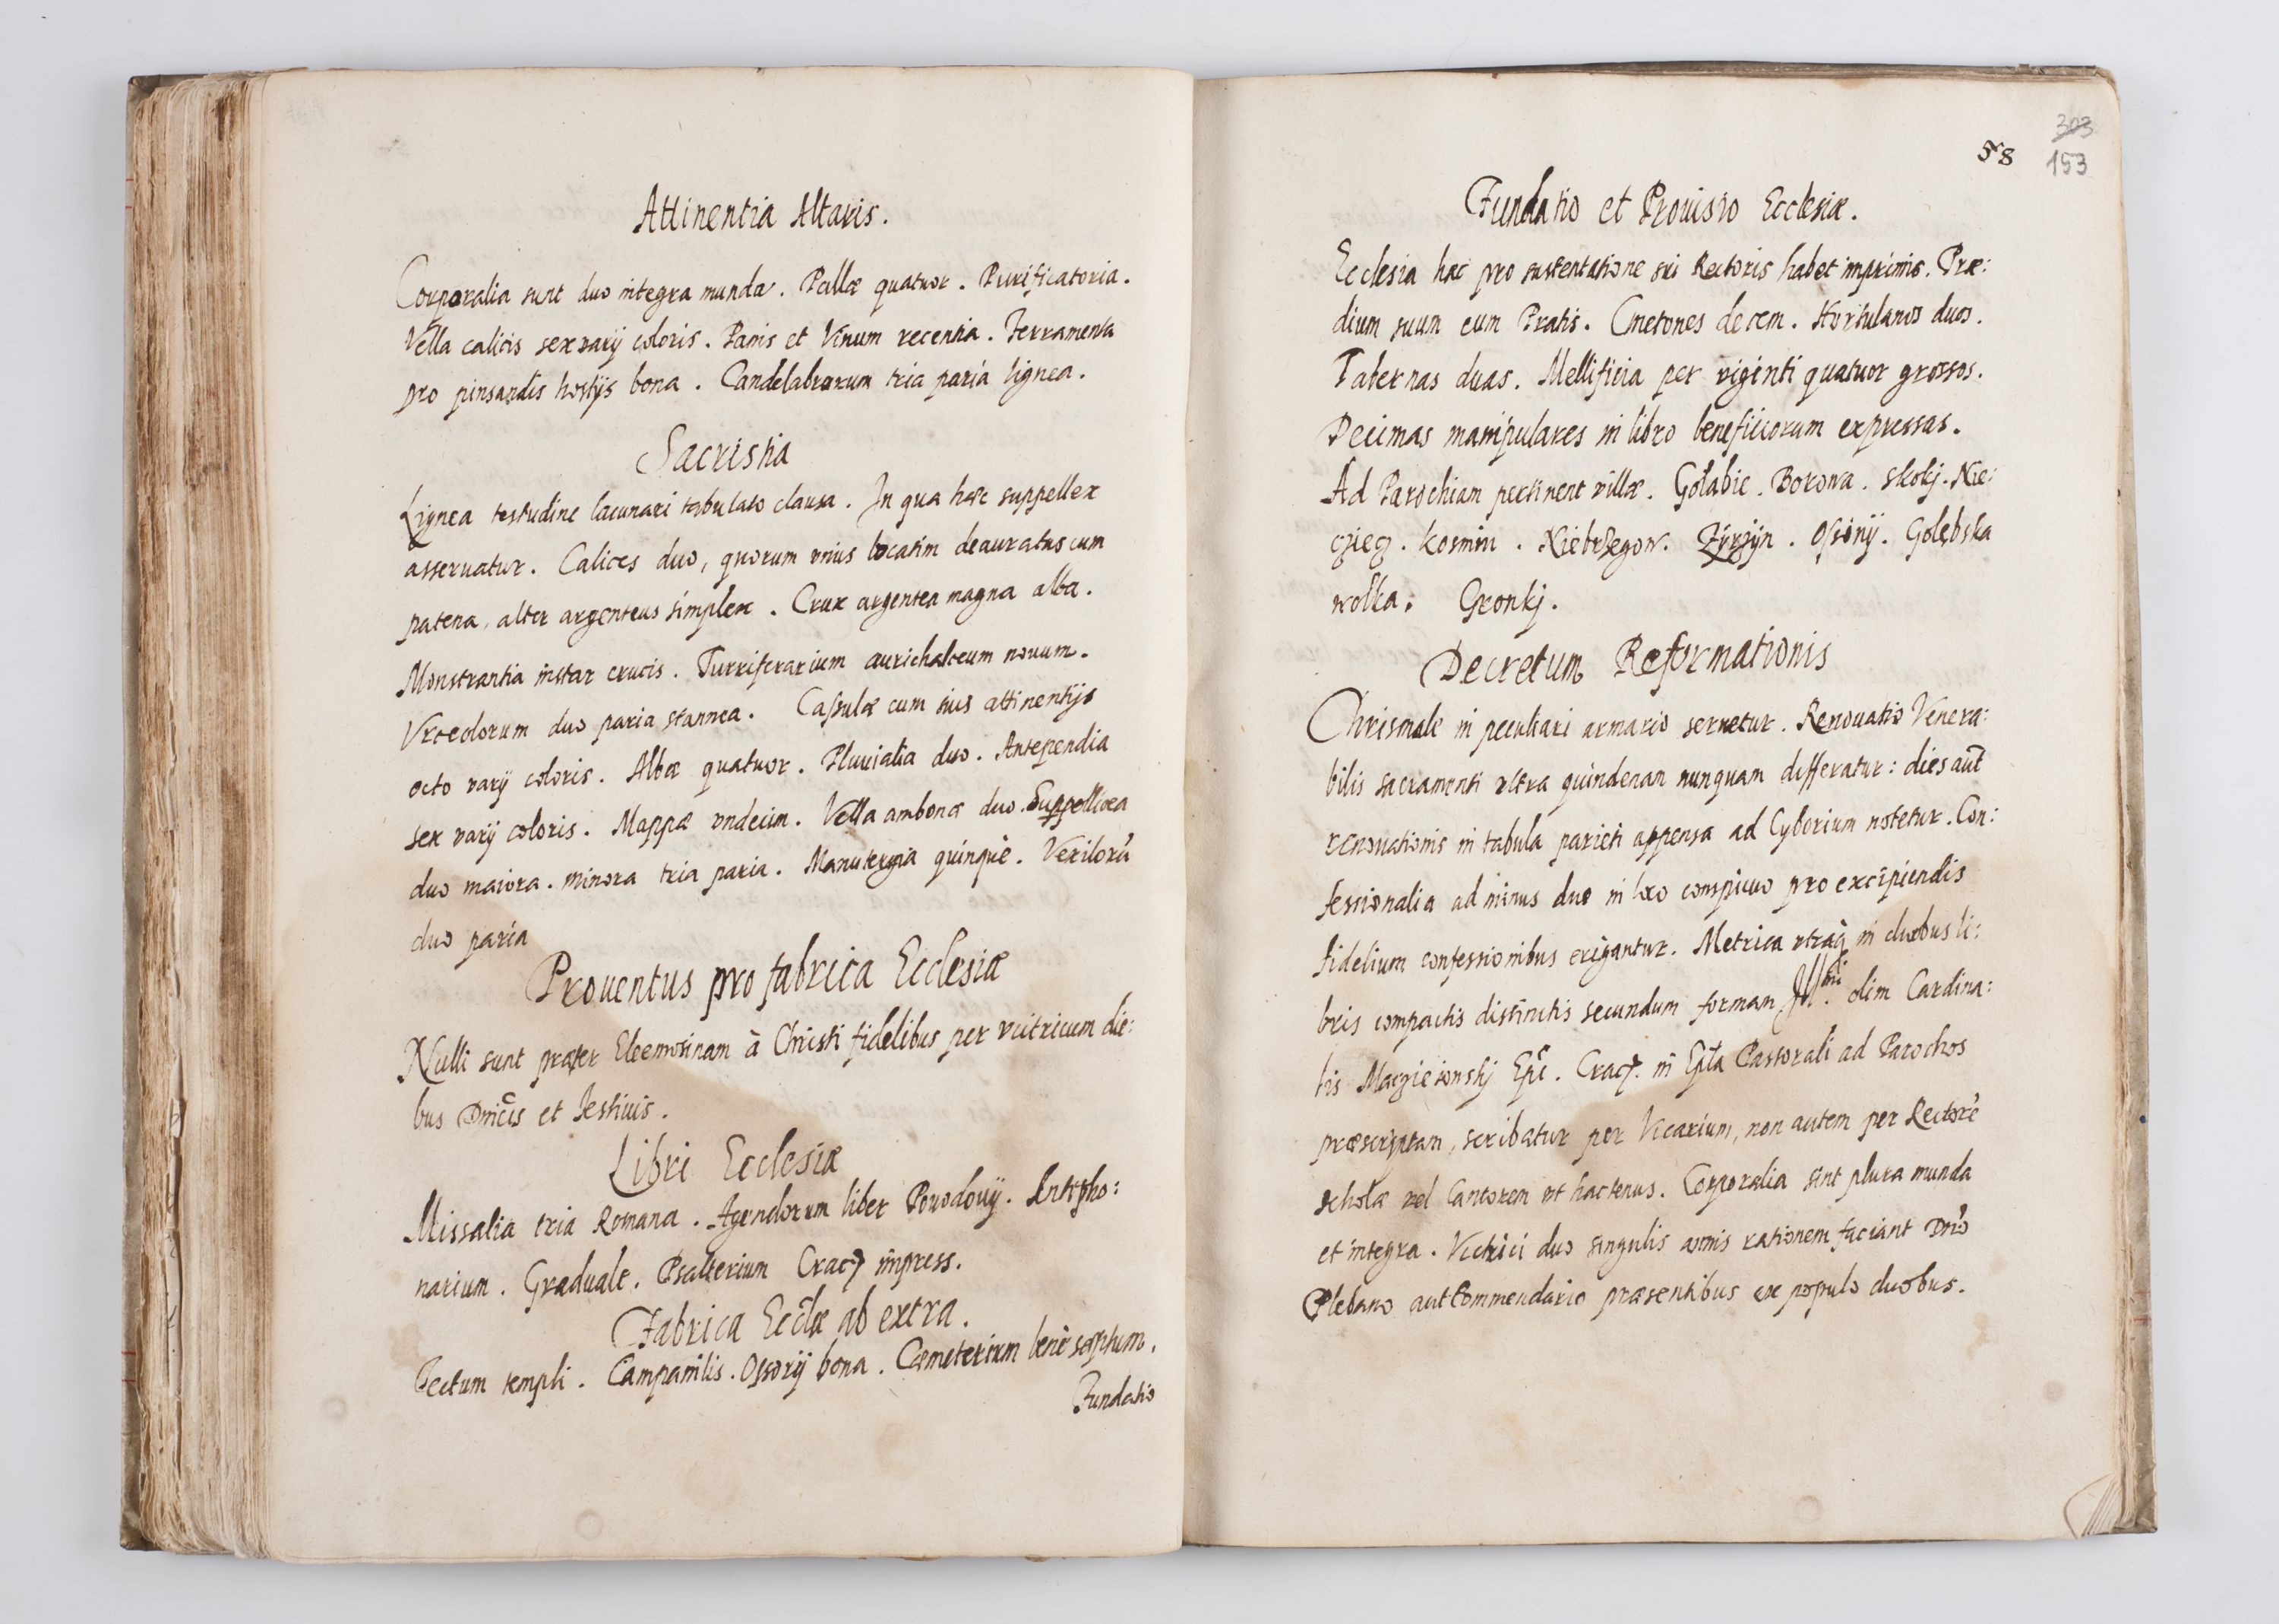 Attinentia Altaris.
Corporalia sunt duo integra munda. Pallæ quatuor. Purificatoria.
Vella calicis sex varij coloris. Panis et Vinum recentia. Ferramenta
pro pinsandis hostijs bona. Candelabrorum tria paria lignea.
Sacristia
Lignea testudine lacunari tabulato clausa. In qua hæc suppellex
asseruatur. Calices duo, quorum vnius locatim deauratus cum
patena, alter argenteus simplex. Crux argentea magna alba.
Monstrantia instar crucis. Turriferarium aurichalceum nouum.
Vrceolorum duo paria stannea. Cassulæ cum suis attinentijs
octo varij coloris. Albæ quatuor. Pluuialia duo. Antependia
sex varij coloris. Mappæ vndecim. Vella ambonæ duo. Suppellicea
duo maiora. minora tria paria. Manutergia quinque. Vexilorũ
duo paria
Prouentus pro fabrica Ecclesiæ
Nulli sunt præter Eleemosinam à Christi fidelibus per vitricum die:
bus Dnĩcis et festiuis.
Libri Ecclesiæ
Missalia tria Romana. Agendorum liber Powodouij. Antipho:
narium. Graduale. Psalterium Crac: impress.
Fabrica Ecclæ ab extra.
Tectum templi. Campanilis. Ossorij bona. Cæmeterium bene septum.
Fundatio
303
58
153
Fundatio et Prouisio Ecclesiæ.
Ecclesia hæc pro sustentatione sui Rectoris habet inprimis. Præ:
dium suum cum Pratis. Cmetones decem. Hortulanos duos.
Tabernas duas. Mellificia per viginti quatuor grossos.
Decimas manipulares in libro beneficiorum expressas.
Ad Parochiam pertinent villæ. Gołabie. Borowa. Skokj. Nie:
cziecz. Kosmin. Niebrzegow. Zyrzyn. Osiny. Golębska
wolka. Gronkj.
Decretum Reformationis
Chrismale in peculiari armario seruetur. Renouatio Venera:
bilis sacramenti vltra quindenam nunquam differatur: dies aut̃
renouationis in tabula parieti appensa ad Cyborium notetur. Con:
fessionalia ad minus duo in loco conspicuo pro excipiendis
fidelium confessionibus erigantur. Metrica vtraq in duobus li:
bris compactis distinctis secundum formam Ill.mi olim Cardina:
lis Maczieiowskj Epĩ. Crac: in Epĩla Pastorali ad Parochos
præscriptam, scribatur per Vicarium, non autem per Rectorẽ
scholæ vel Cantorem vt hactenus. Corporalia sint plura munda
et integra. Vitrici duo singulis annis rationem faciant Dnõ
Plebano aut Commendario præsentibus ex populo duobus.